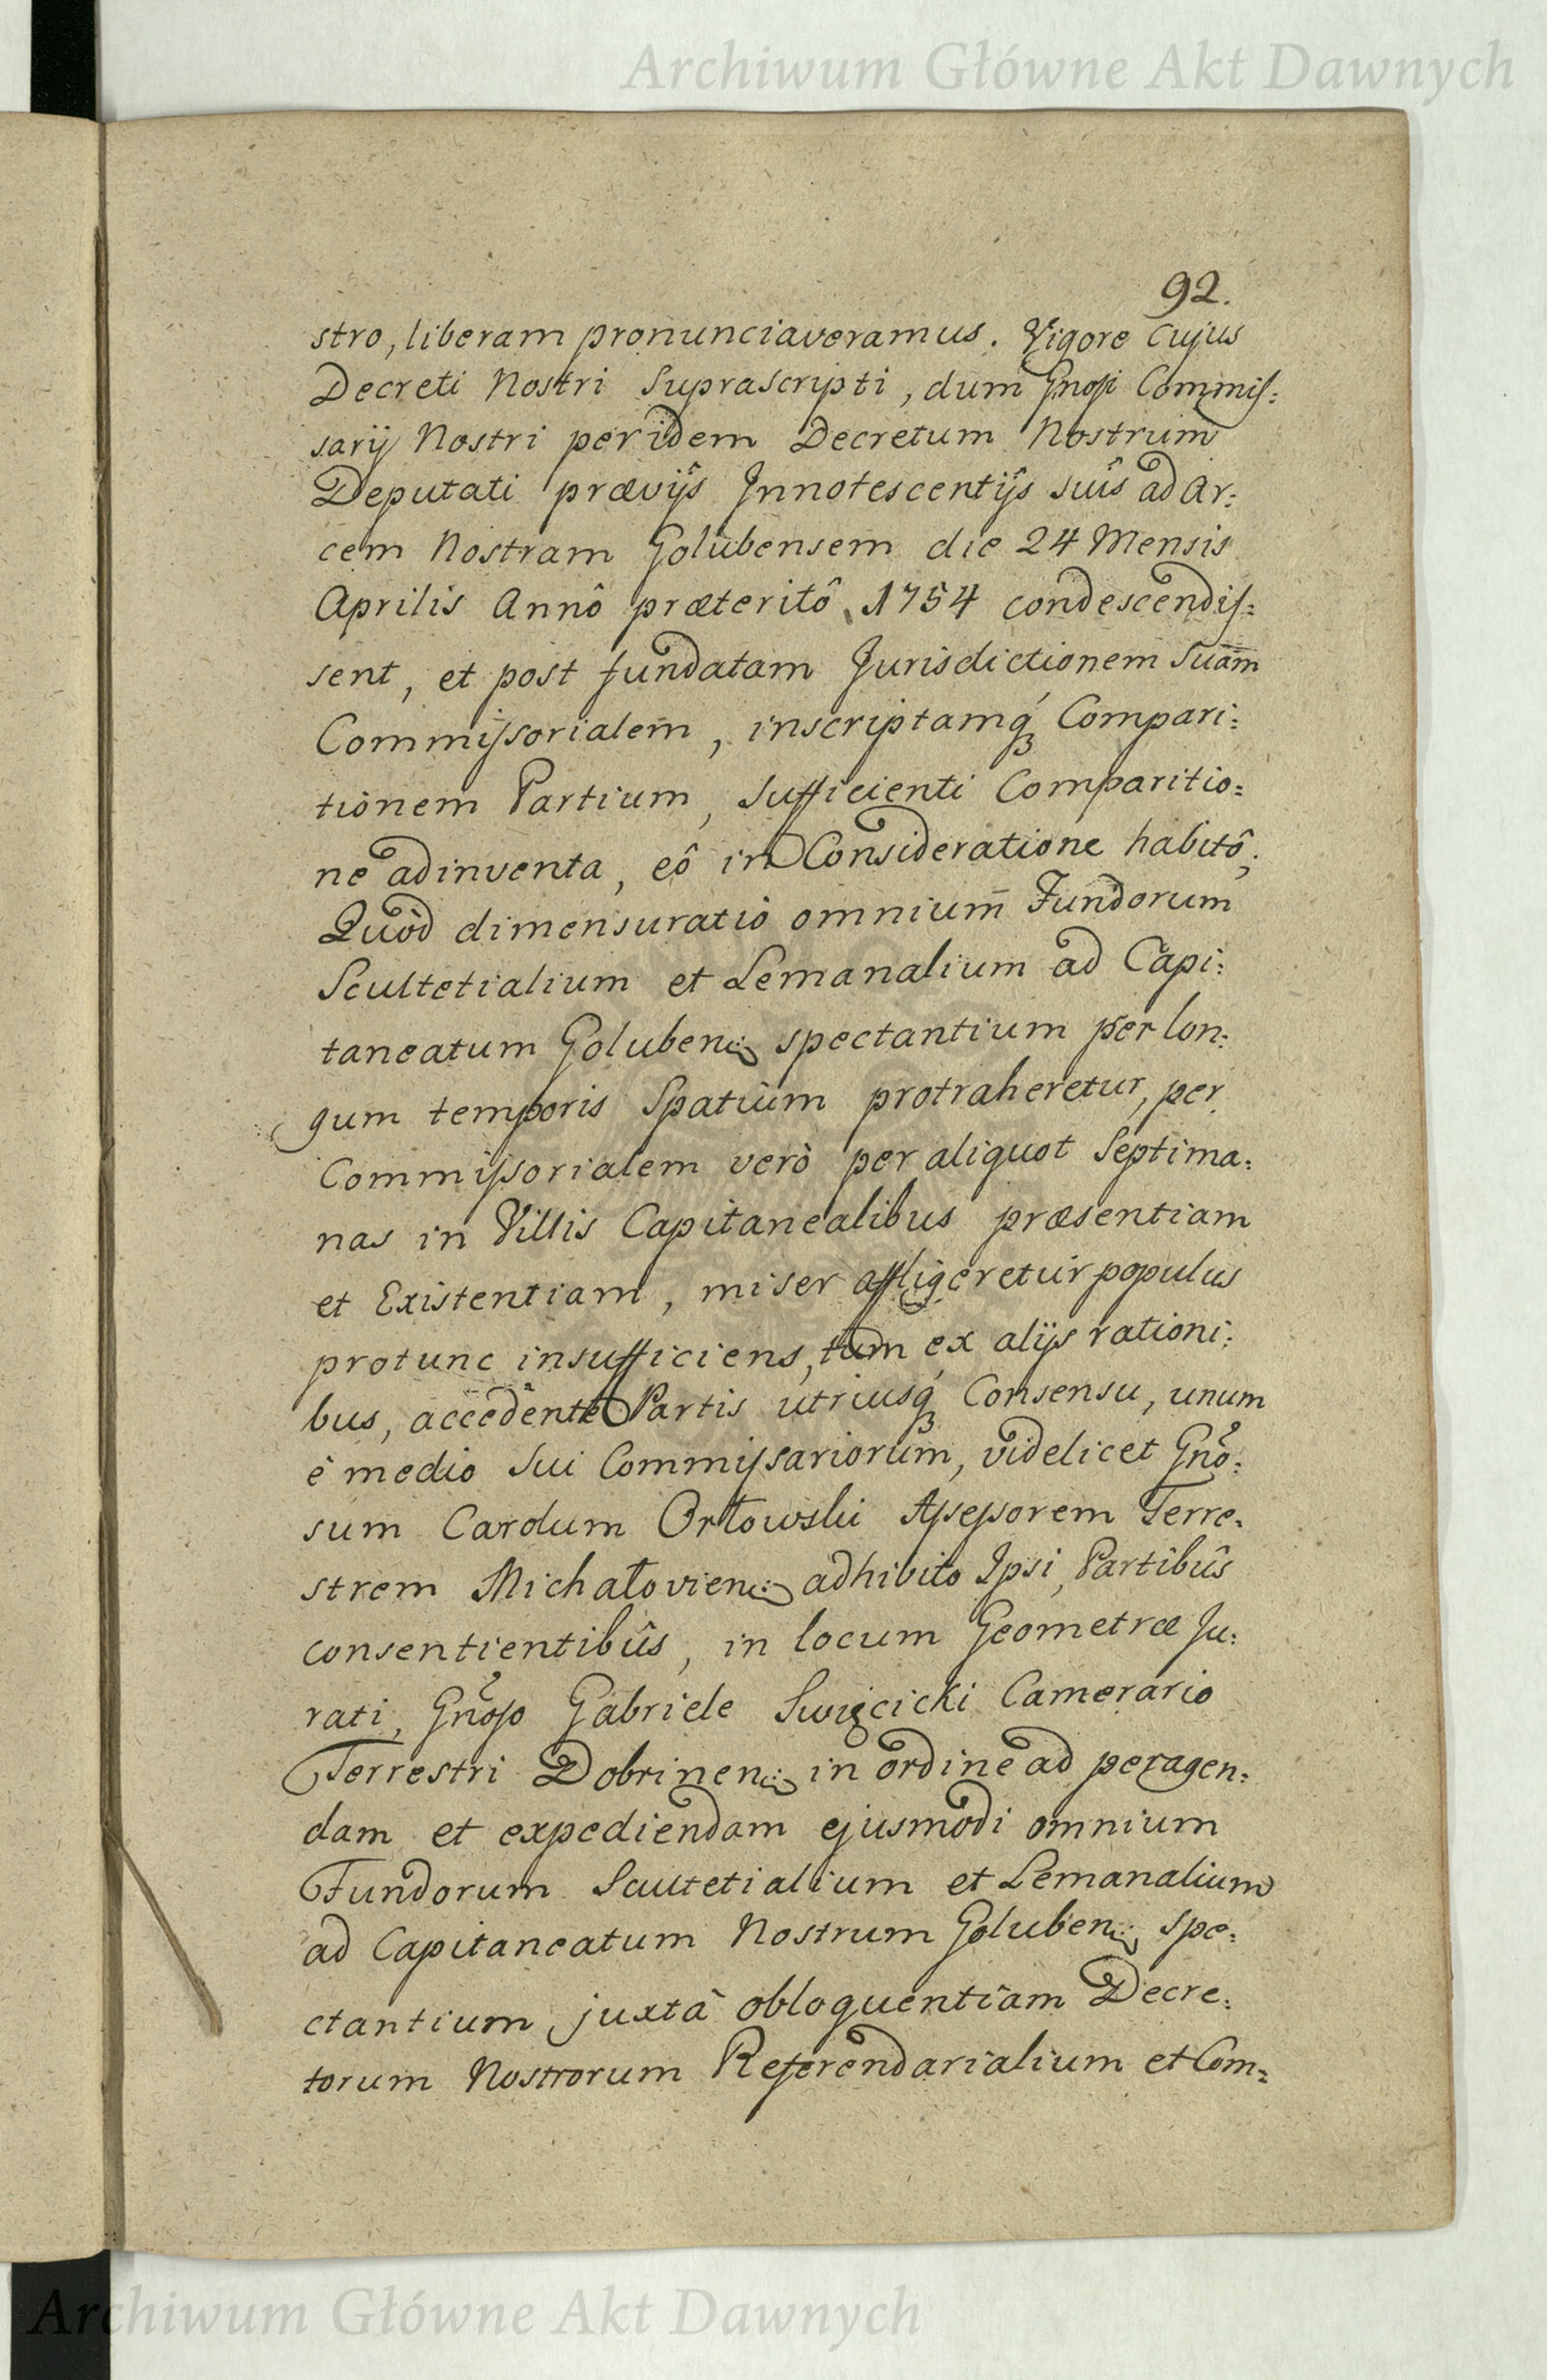 Archiwum Główne Akt Dawnych
92.
stro, liberam pronunciaveramus. Vigore cujus
Decreti Nostri Suprascripti, dum Gnosi Commis=
sarij Nostri per idem Decretum Nostrum
Deputati prævijs Innotescentijs suîs ad Ar=
cem Nostram Golubensem die 24 Mensis
Aprilis Annô præteritô 1754 condescendis=
sent, et post fundatam Jurisdictionem Suam
Commissorialem, inscriptamq́ Compari=
tionem Partium, sufficienti Comparitio=
ne adinventa, eô in Consideratione habitô;
Quòd dimensuratio omnium Fundorum
Scultetialium et Lemanalium ad Capi=
taneatum Goluben: spectantium per lon=
gum temporis Spatium protraheretur, per
Commissorialem verò per aliquot Septima=
nas in Villis Capitanealibus præsentiam
et Existentiam, miser affligeretur populus
protunc insufficiens, tum ex alijs rationi=
bus, accedente Partis utriusq́ Consensu, unum
è medio Sui Commissariorum, videlicet Gno=
sum Carolum Orłowski Assessorem Terre=
strem Michałovien: adhibito Ipsi, Partibûs
consentientibûs, in locum Geometræ Ju=
rati, Gnoso Gabriele Swięcicki Camerario
Terrestri Dobrinen: in ordine ad peragen=
dam et expediendam ejusmodi omnium
Fundorum Scultetialium et Lemanalium
ad Capitaneatum Nostrum Goluben: spe=
ctantium juxtà obloquentiam Decre=
torum Nostrorum Referendarialium et Com=
Archiwum Główne Akt Dawnych